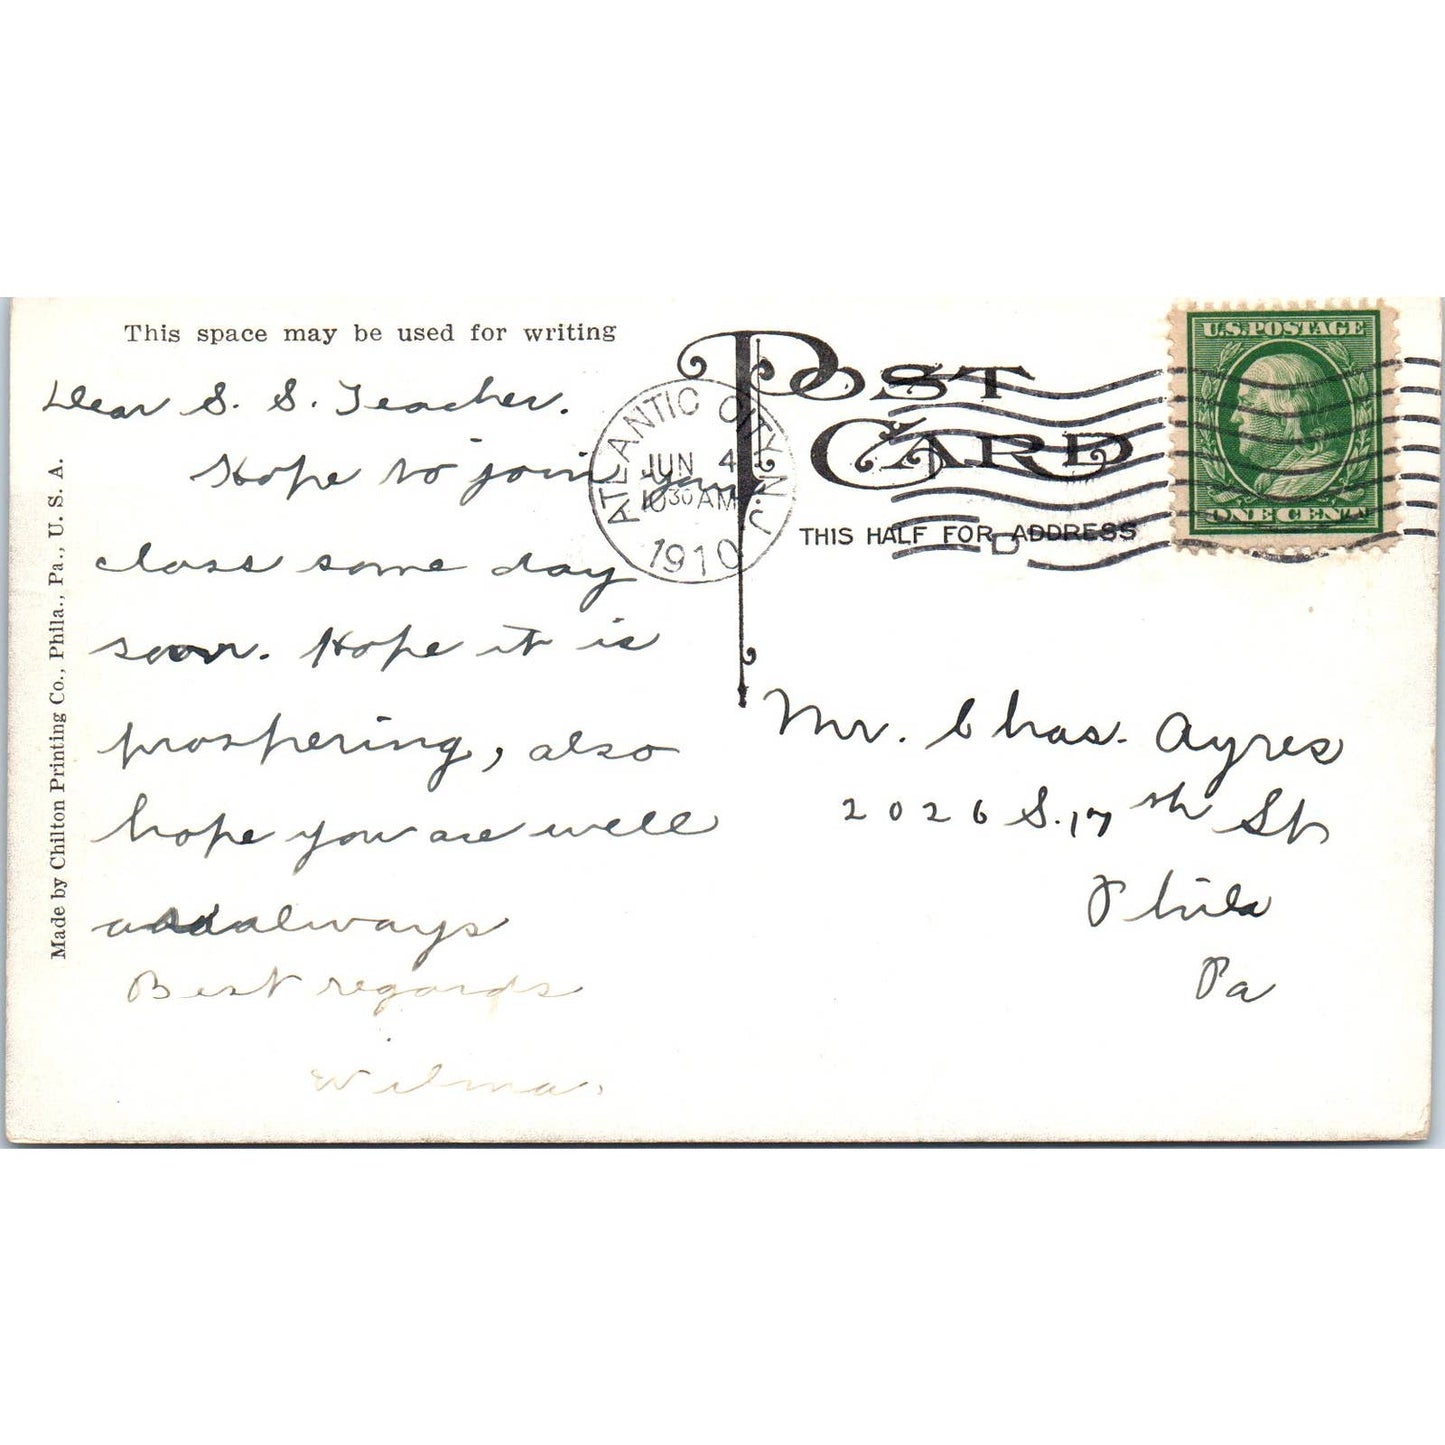 This space may be used for writing
Dear S. S. Teacher.
Hope to join your
class some day
soon. Hope it is
prospering, also
hope you are well
always
Best regards
Wilma.
Made by Chilton Printing Co., Phila., Pa., U. S. A.
ATLANTIC CITY, N.J.
JUN 4
10 30 AM
1910
POST
CARD
THIS HALF FOR ADDRESS
U.S. POSTAGE
ONE CENT
Mr. Chas. Ayres
2026 S. 17th St
Phila
Pa